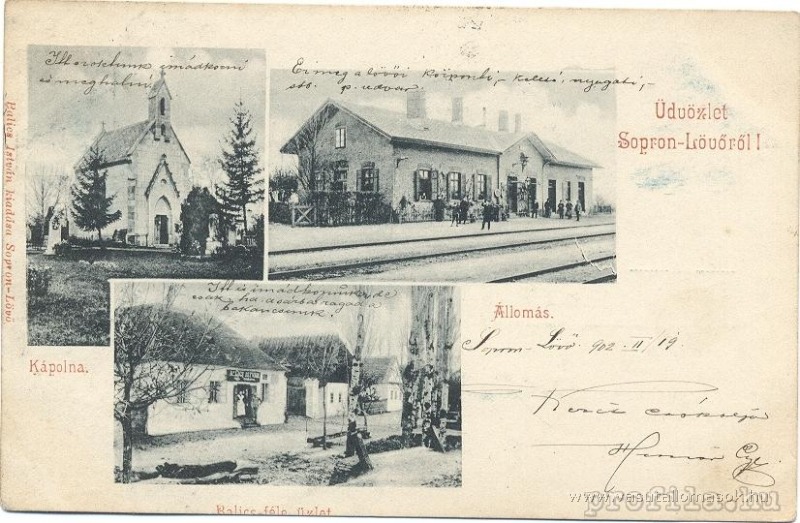 Itt szoktunk imádkozni
és meghalni
Ez meg a lövői központi, - keleti, nyugati, -
stb. p. udvar.
Üdvözlet
Sopron-Lövőről!
Balics István kiadása Sopron-Lövő
Itt is imádkozunk de
csak ha a sárba ragad a
bakancsunk.
Állomás.
Kápolna.
Sopron-Lövő 902 II/19
Kezeit csókolja
Balics-féle üzlet
www.vasutallomasok.hu
profila.hu